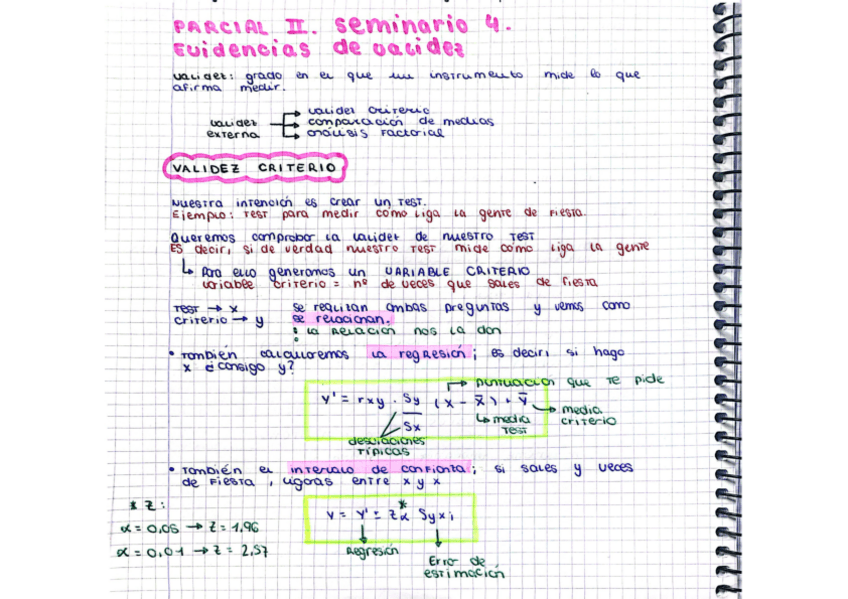 PARCIAL II. seminario 4.
Evidencias de validez
validez: grado en el que un instrumento mide lo que
afirma medir.
validez externa
→ validez criterio
→ comparación de medias
→ análisis factorial
VALIDEZ CRITERIO
Nuestra intención es crear un TEST.
Ejemplo: TEST para medir como liga la gente de fiesta.
Queremos comprobar la validez de nuestro TEST
ES decir, si de verdad nuestro TEST mide como liga la gente
↳ Para ello generamos un VARIABLE CRITERIO
variable criterio = nº de veces que sales de fiesta
TEST → x se realizan ambas preguntas y vemos como
criterio → y se relacionan.
: la relación nos la dan
• También calcularemos la regresión; es decir, si hago
x ¿consigo y?
→ puntuación que te pide
y' = rxy · Sy/Sx (x - x̄) + ȳ
↳ media TEST
→ media criterio
desviaciones típicas
• También el intervalo de confianza; si sales y veces
de fiesta, ligaras entre x y x
* Z:
α = 0,05 → Z = 1,96
α = 0,01 → Z = 2,57
*
Y = Y' ± Zα Syxi
Regresión
Error de
estimación